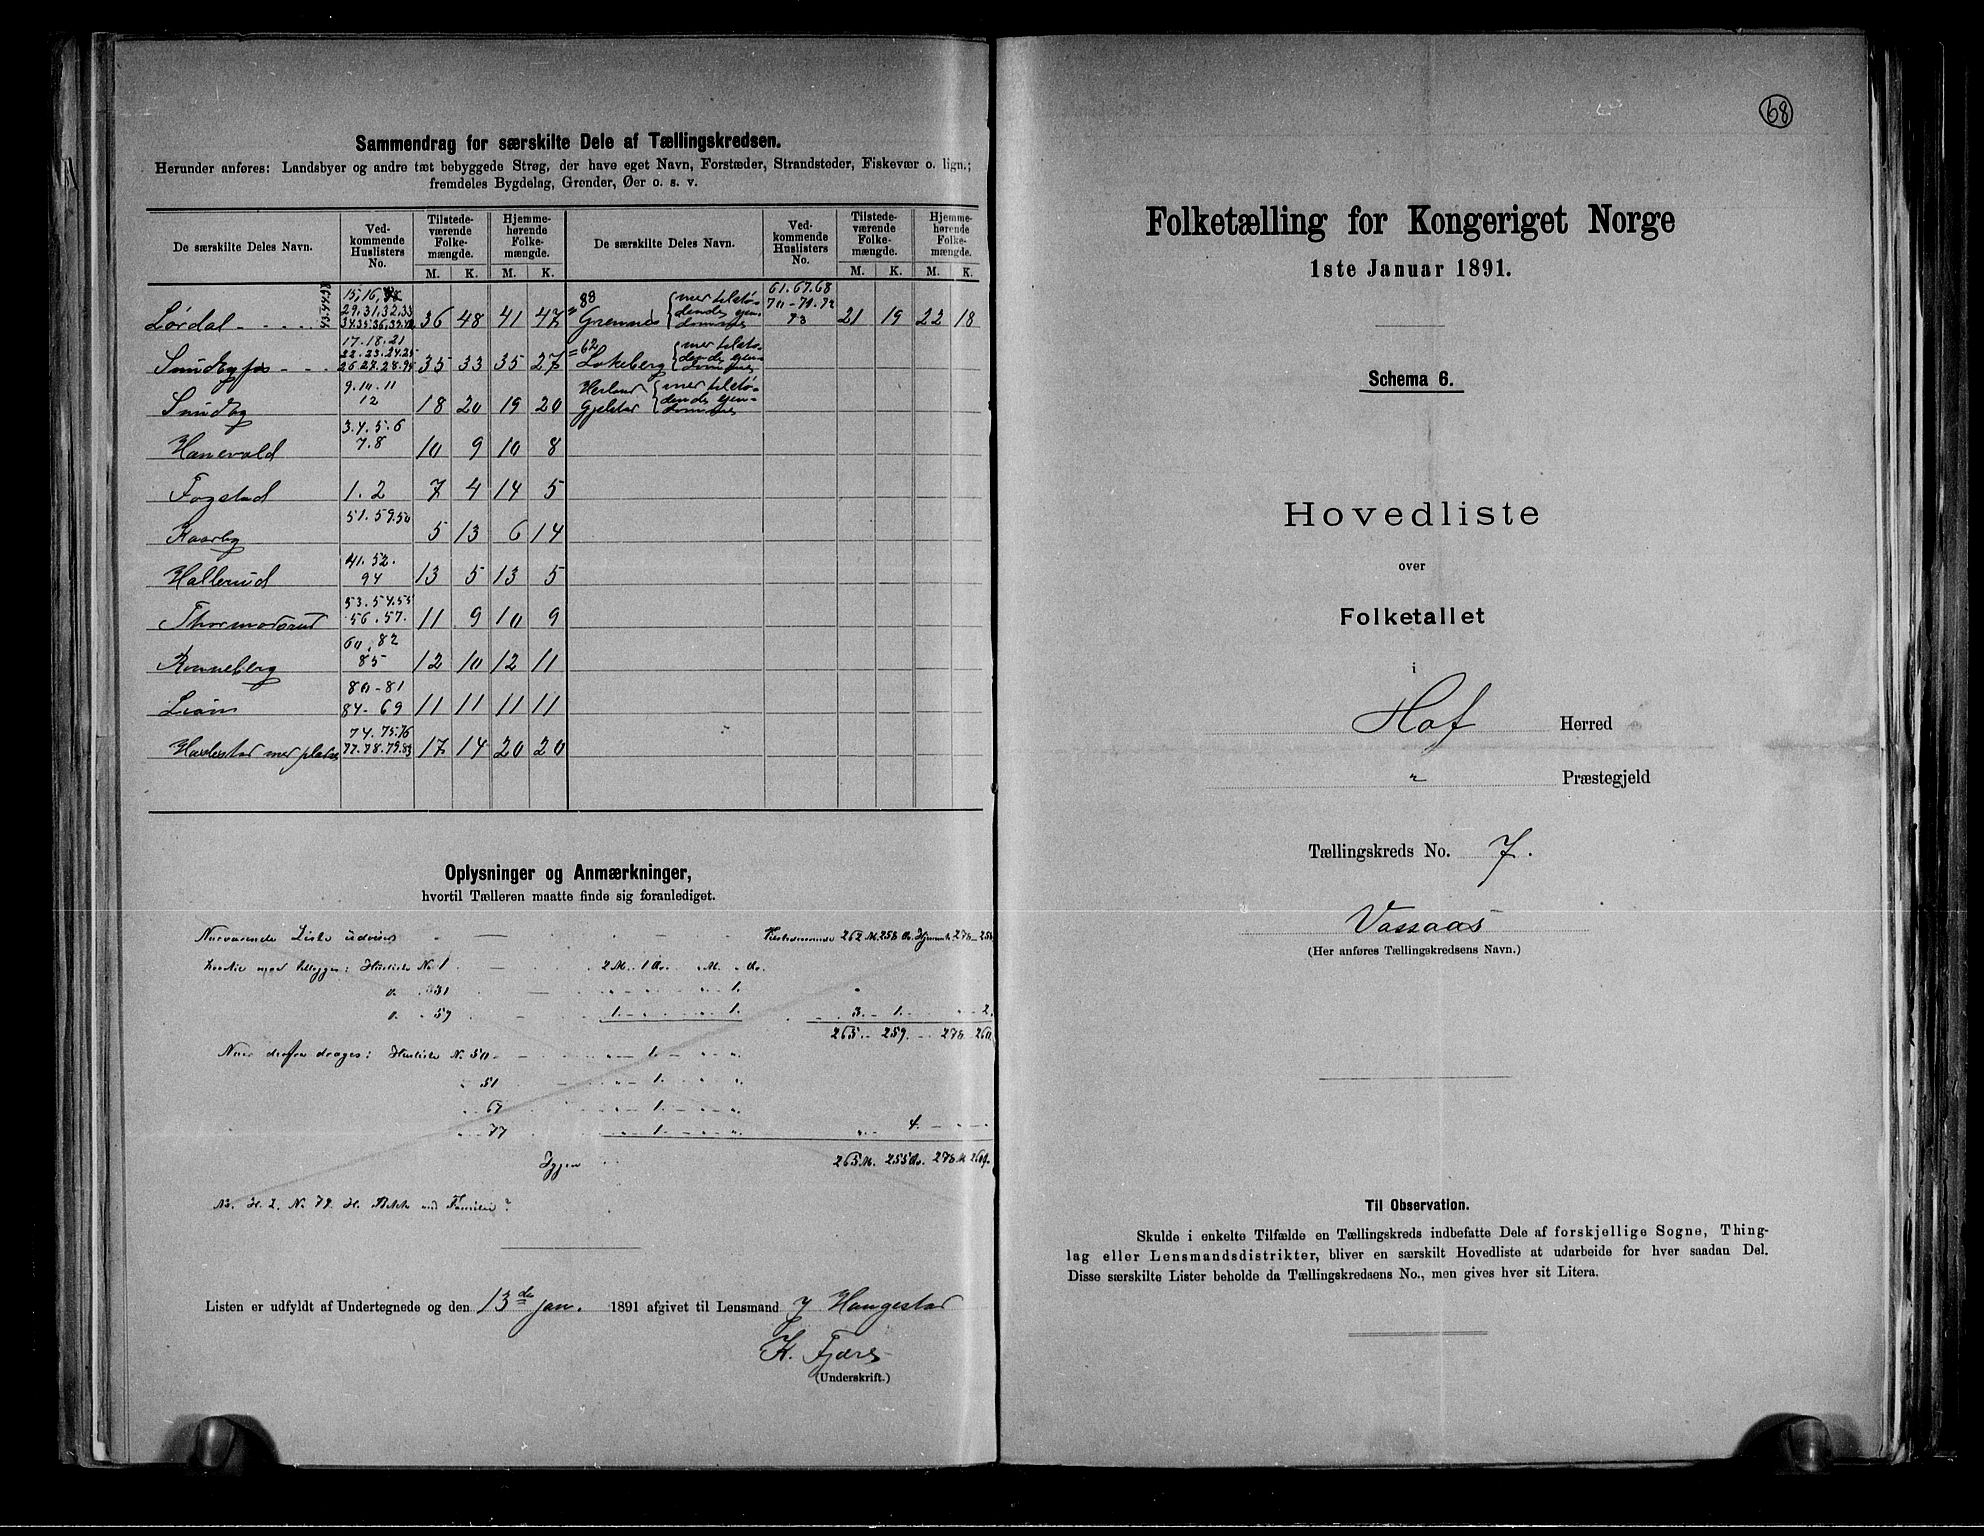 Sammendrag for særskilte Dele af Tællingskredsen.
Herunder anføres: Landsbyer og andre tæt bebyggede Strøg, der have eget Navn, Forstæder, Strandsteder, Fiskevær o. lign.;
fremdeles Bygdelag, Grender, Øer o. s. v.
De særskilte Deles Navn. Ved-kommende Huslisters No. Tilstede-værende Folke-mængde. Hjemme-hørende Folke-mængde. De særskilte Deles Navn. Ved-kommende Huslisters No. Tilstede-værende Folke-mængde. Hjemme-hørende Folke-mængde.
M. K. M. K. M. K. M. K.
Lørdal 15, 16, 29, 31, 32, 33 36 48 41 47 88 Grennes 61. 67. 68 21 19 22 18
Sundbyfos 17. 18. 21 22. 23. 24. 25 26. 27. 28. 35 33 35 27 62 Lokeberg
Sundby 9. 10. 11 12 18 20 19 20 Gjelstad
Hanevold 3. 4. 5. 6 7. 8 10 9 10 8
Fogstad 1. 2 7 4 14 5
Kaarby 51. 59. 50 5 13 6 14
Hallerud 41. 52. 94 13 5 13 5
Thormodsrud 53. 54. 55 56. 57. 11 9 10 9
Ronneberg 60, 82 85 12 10 12 11
80-81 84-69 11 11 11 11
74. 75. 76 77. 78. 79. 83 17 14 20 20
Oplysninger og Anmærkninger,
hvortil Tælleren maatte finde sig foranlediget.
Nærværende Liste udviser 262 M. 258
Husliste No 1 2 M. 1
31 1.
59 1. 1. 3. 1. 2.
265 259 278 260
Husliste No. 50 1.
51 1.
67 1.
77 1. 4.
265 M. 255 278 M
Listen er udfyldt af Undertegnede og den 13de jan. 1891 afgivet til Lensmand Haugestad
K. Fjære
(Underskrift.)
68
Folketælling for Kongeriget Norge
1ste Januar 1891.
Schema 6.
Hovedliste
over
Folketallet
i
Hof Herred
" Præstegjeld
Tællingskreds No. 7.
Vassaas
(Her anføres Tællingskredsens Navn.)
Til Observation.
Skulde i enkelte Tilfælde en Tællingskreds indbefatte Dele af forskjellige Sogne, Thing-
lag eller Lensmandsdistrikter, bliver en særskilt Hovedliste at udarbeide for hver saadan Del.
Disse særskilte Lister beholde da Tællingskredsens No., men gives hver sit Litera.